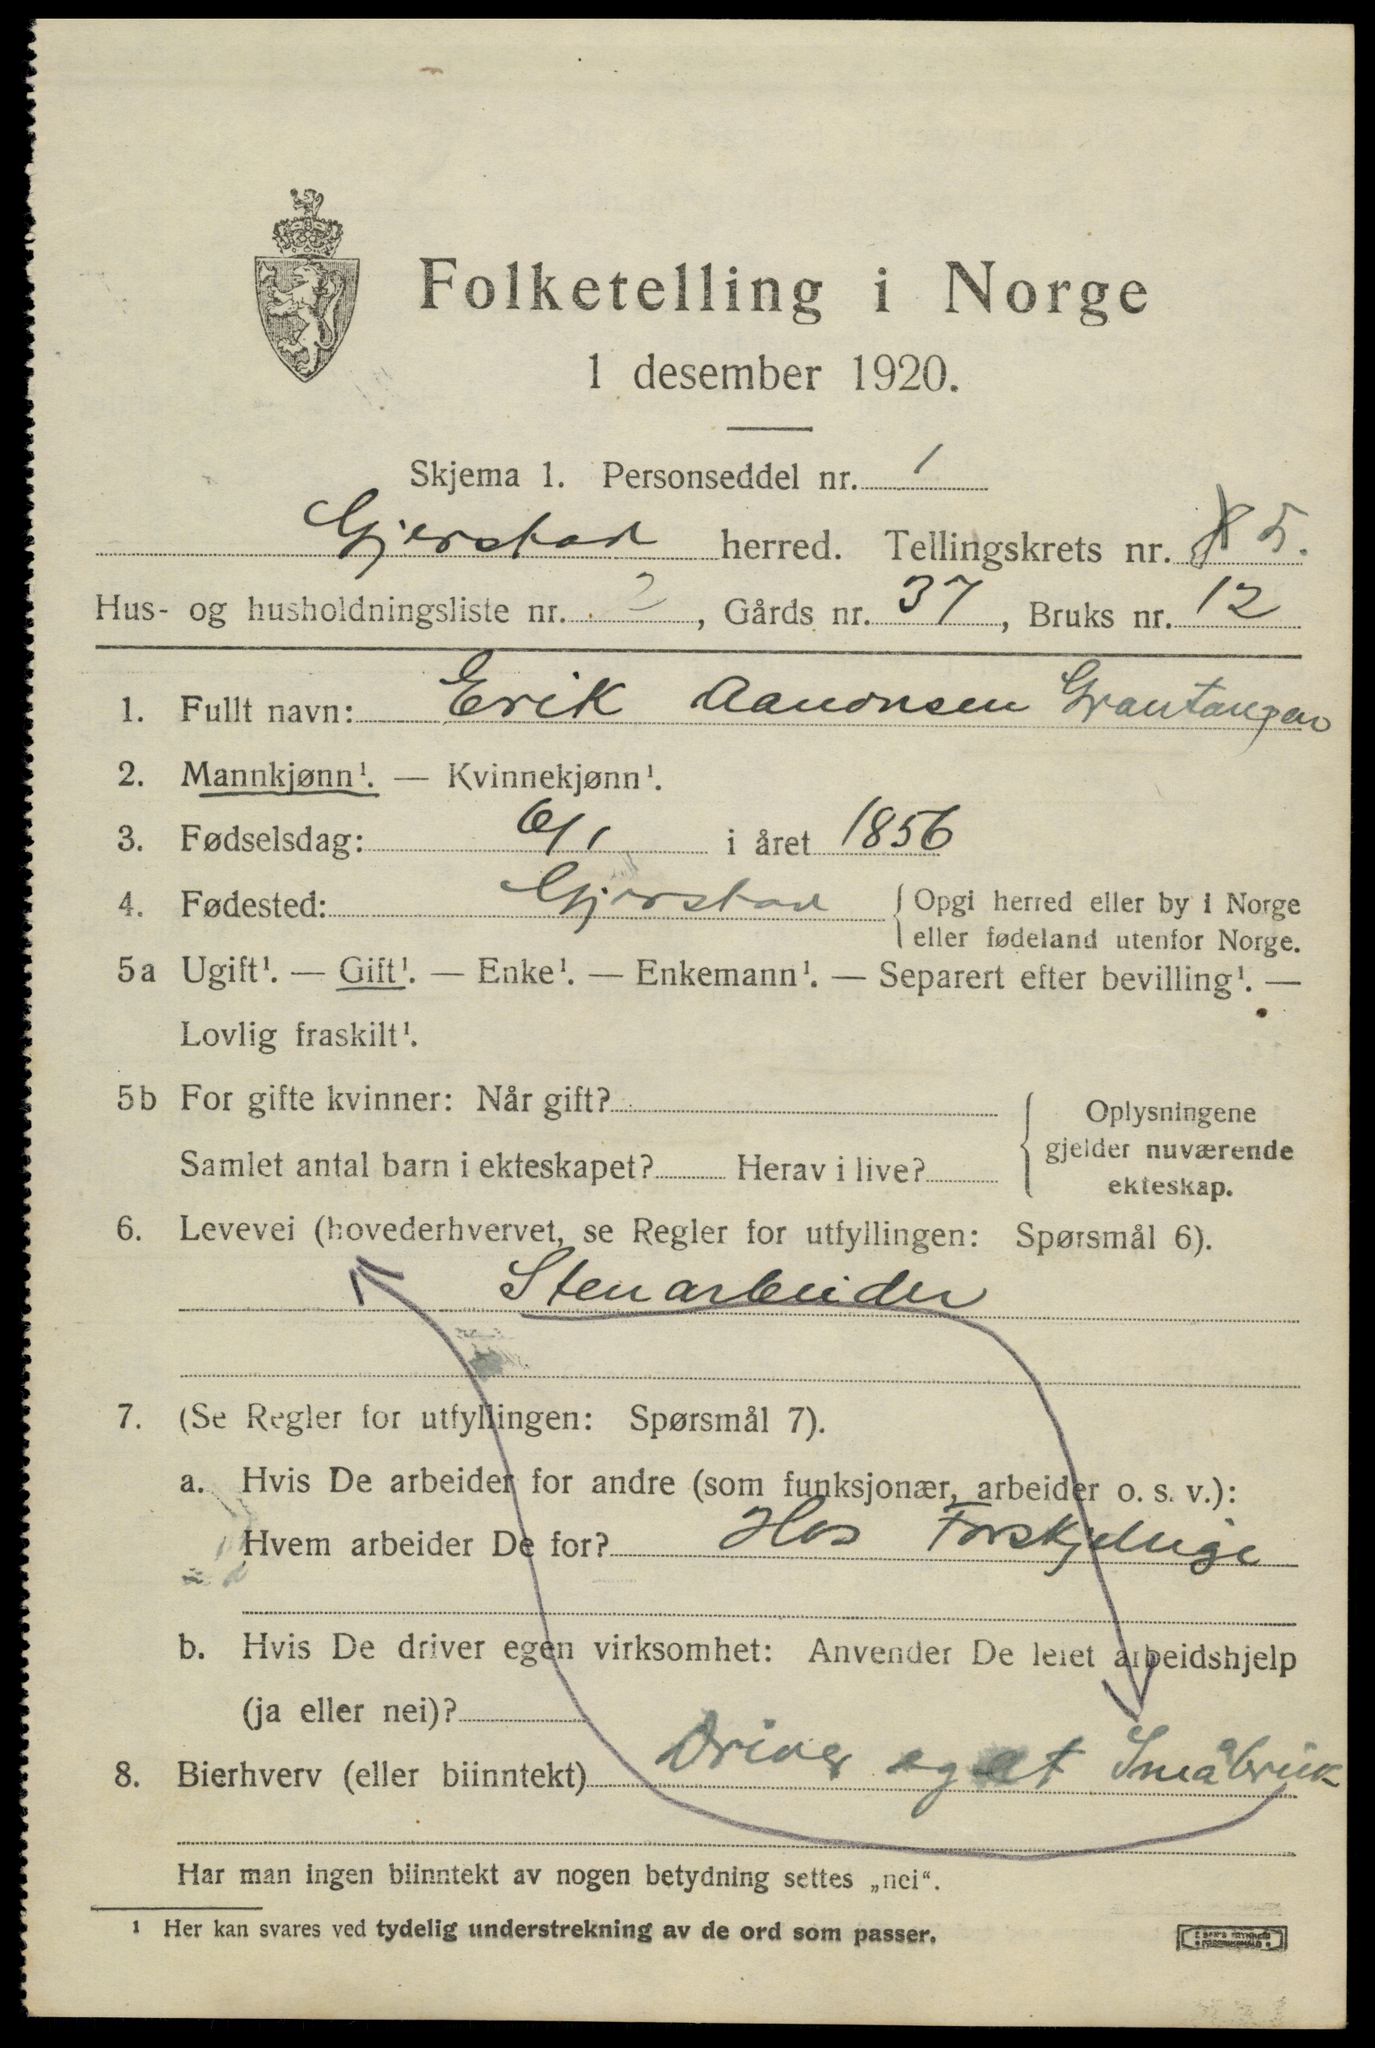 Folketelling i Norge
1 desember 1920.
Skjema 1. Personseddel nr. 1
Gjerstad herred. Tellingskrets nr. 5.
Hus- og husholdningsliste nr. 2, Gårds nr. 37, Bruks nr. 12
1. Fullt navn: Erik Aanonsen Grantangen
2. Mannkjønn¹. — Kvinnekjønn¹.
3. Fødselsdag: 6/1 i året 1856
4. Fødested: Gjerstad { Opgi herred eller by i Norge
eller fødeland utenfor Norge.
5a Ugift¹. — Gift¹. — Enke¹. — Enkemann¹. — Separert efter bevilling¹. —
Lovlig fraskilt¹.
5b For gifte kvinner: Når gift?
Samlet antal barn i ekteskapet? Herav i live?
Oplysningene
gjelder nuværende
ekteskap.
6. Levevei (hovederhvervet, se Regler for utfyllingen: Spørsmål 6).
Stenarbeider
7. (Se Regler for utfyllingen: Spørsmål 7).
a. Hvis De arbeider for andre (som funksjonær, arbeider o. s. v.):
Hvem arbeider De for? Hos Forskjellige
b. Hvis De driver egen virksomhet: Anvender De leiet arbeidshjelp
(ja eller nei)?
8. Bierhverv (eller biinntekt) Driver eget Småbruk
Har man ingen biinntekt av nogen betydning settes „nei".
¹ Her kan svares ved tydelig understrekning av de ord som passer.